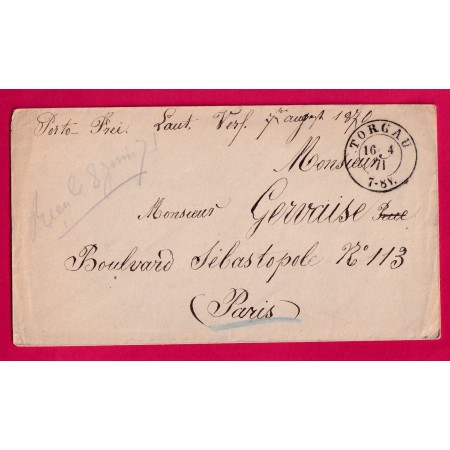 Porto Frei. Laut. Verf. 7 august 1870
TORGAU
16 4
71
7-8V.
Monsieur
Monsieur Gervaise Rue
Boulvard Sébastopole No 113
(Paris)
le 8 juin 71